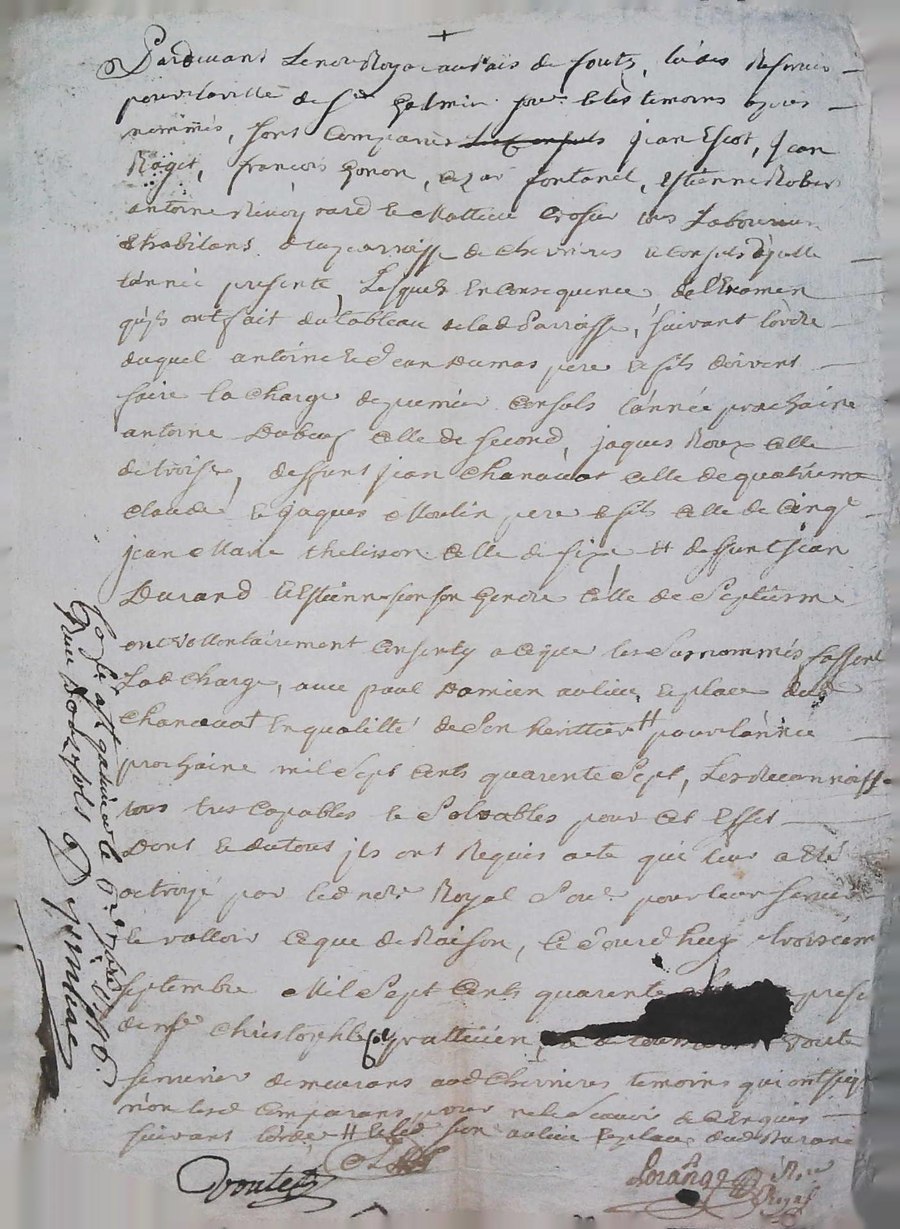 Pardevant Le no.re Royal au païs de foretz,
pour la ville de S.t Galmier sous.né et les temoins apres
nommés, sont Comparus jean Escot, jean
Roget, francois Gonon, fontanel, Estienne Robert
antoine et Mathieu Crosier tous Laboureurs
Habitans de la parroisse de Chevrieres et Consuls d'ycelle
l'année presente, Lesquels En Consequence de l'Examen
qu'ils ont fait du tableau de lad Parroisse, suivant l'ordre
duquel antoine et Jean Dumas pere et fils doivent
faire la Charge de premier Consuls l'année prochaine
antoine Dubœuf Celle de second, jaques Roux Celle
de troise, deffunt jean Chanavat Celle de quatrieme
Claude et jaques Moulin pere et fils Celle de Cinq.e
jean Marie thelisson Celle de six.e et deffunt jean
Durand et Estienne son Gendre Celle de Septieme
ont vollontairement Consenty a Ceque les Surnommés fassent
Lad Charge, avec paul Damien au lieu et place dud
Chanavat En qualitté de Son herittier H pour l'année
prochaine mil Sept Cents quarente Sept, Les Reconnoiss
tous tres Capables et Solvables pour Cet Effet
Dont et du tout jls ont Requis acte qui leur a Eté
octroyé par led no.re Royal Sous.né pour leur servir
et valloir Ceque de Raison, Ce Jourd'huy troisieme
septembre Mil Sept Cents quarente
de m.re Christophle voute
serrurier demeurans aud Chevrieres temoins qui ont sig
non lesd Comparans pour ne le Scavoir de Ce Enquis
suivant l'orde H et led au lieu et place dud Durand
voutes
Lorange No.re Royal
a S.t galmier le 7.bre 1746.
Reçu Douze sols